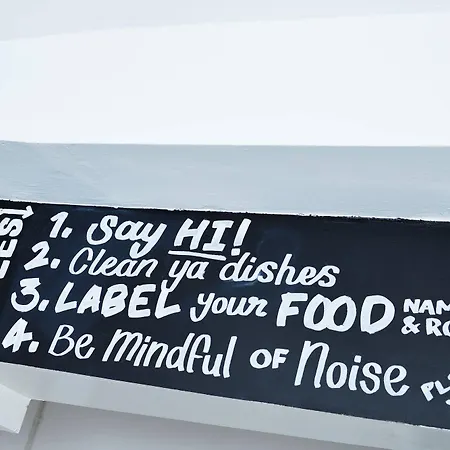 1. Say HI!
2. Clean ya dishes
3. LABEL your FOOD
4. Be Mindful OF Noise